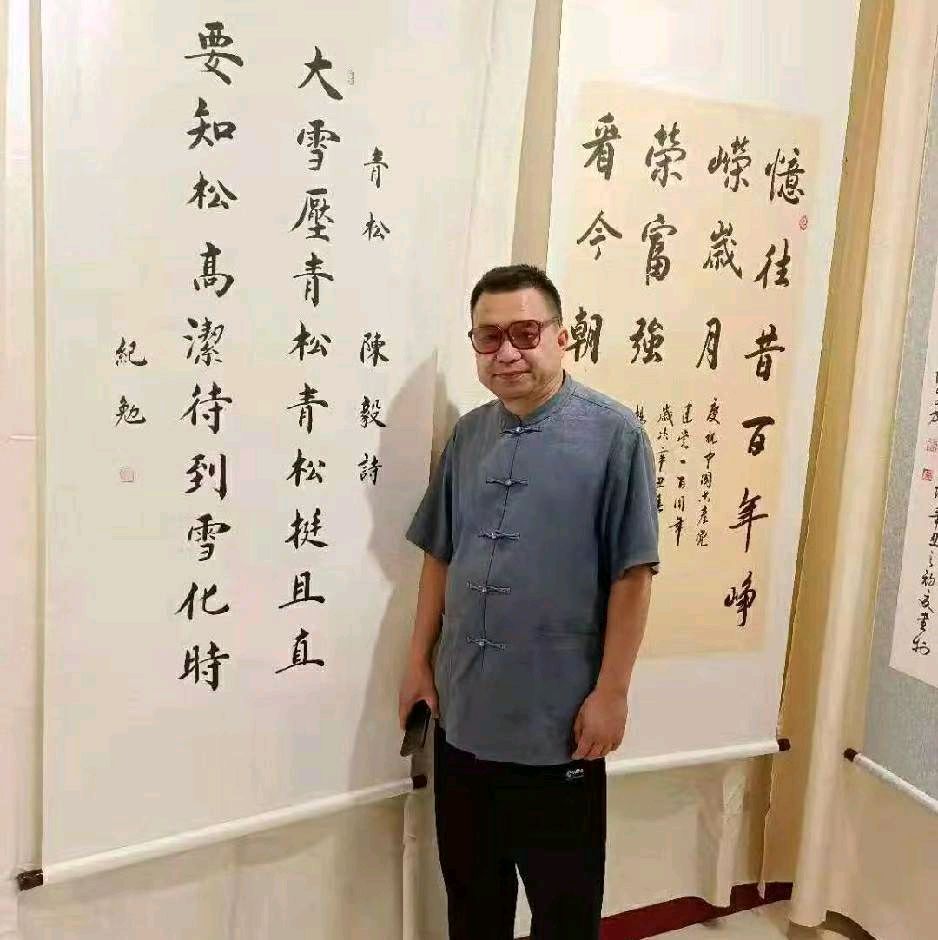 青松 陳毅詩
大雪壓青松青松挺且直
要知松高潔待到雪化時
紀勉
憶往昔百年崢
嶸歲月
榮富強
看今朝
慶祝中國共產黨
建黨一百周年
歲次辛丑